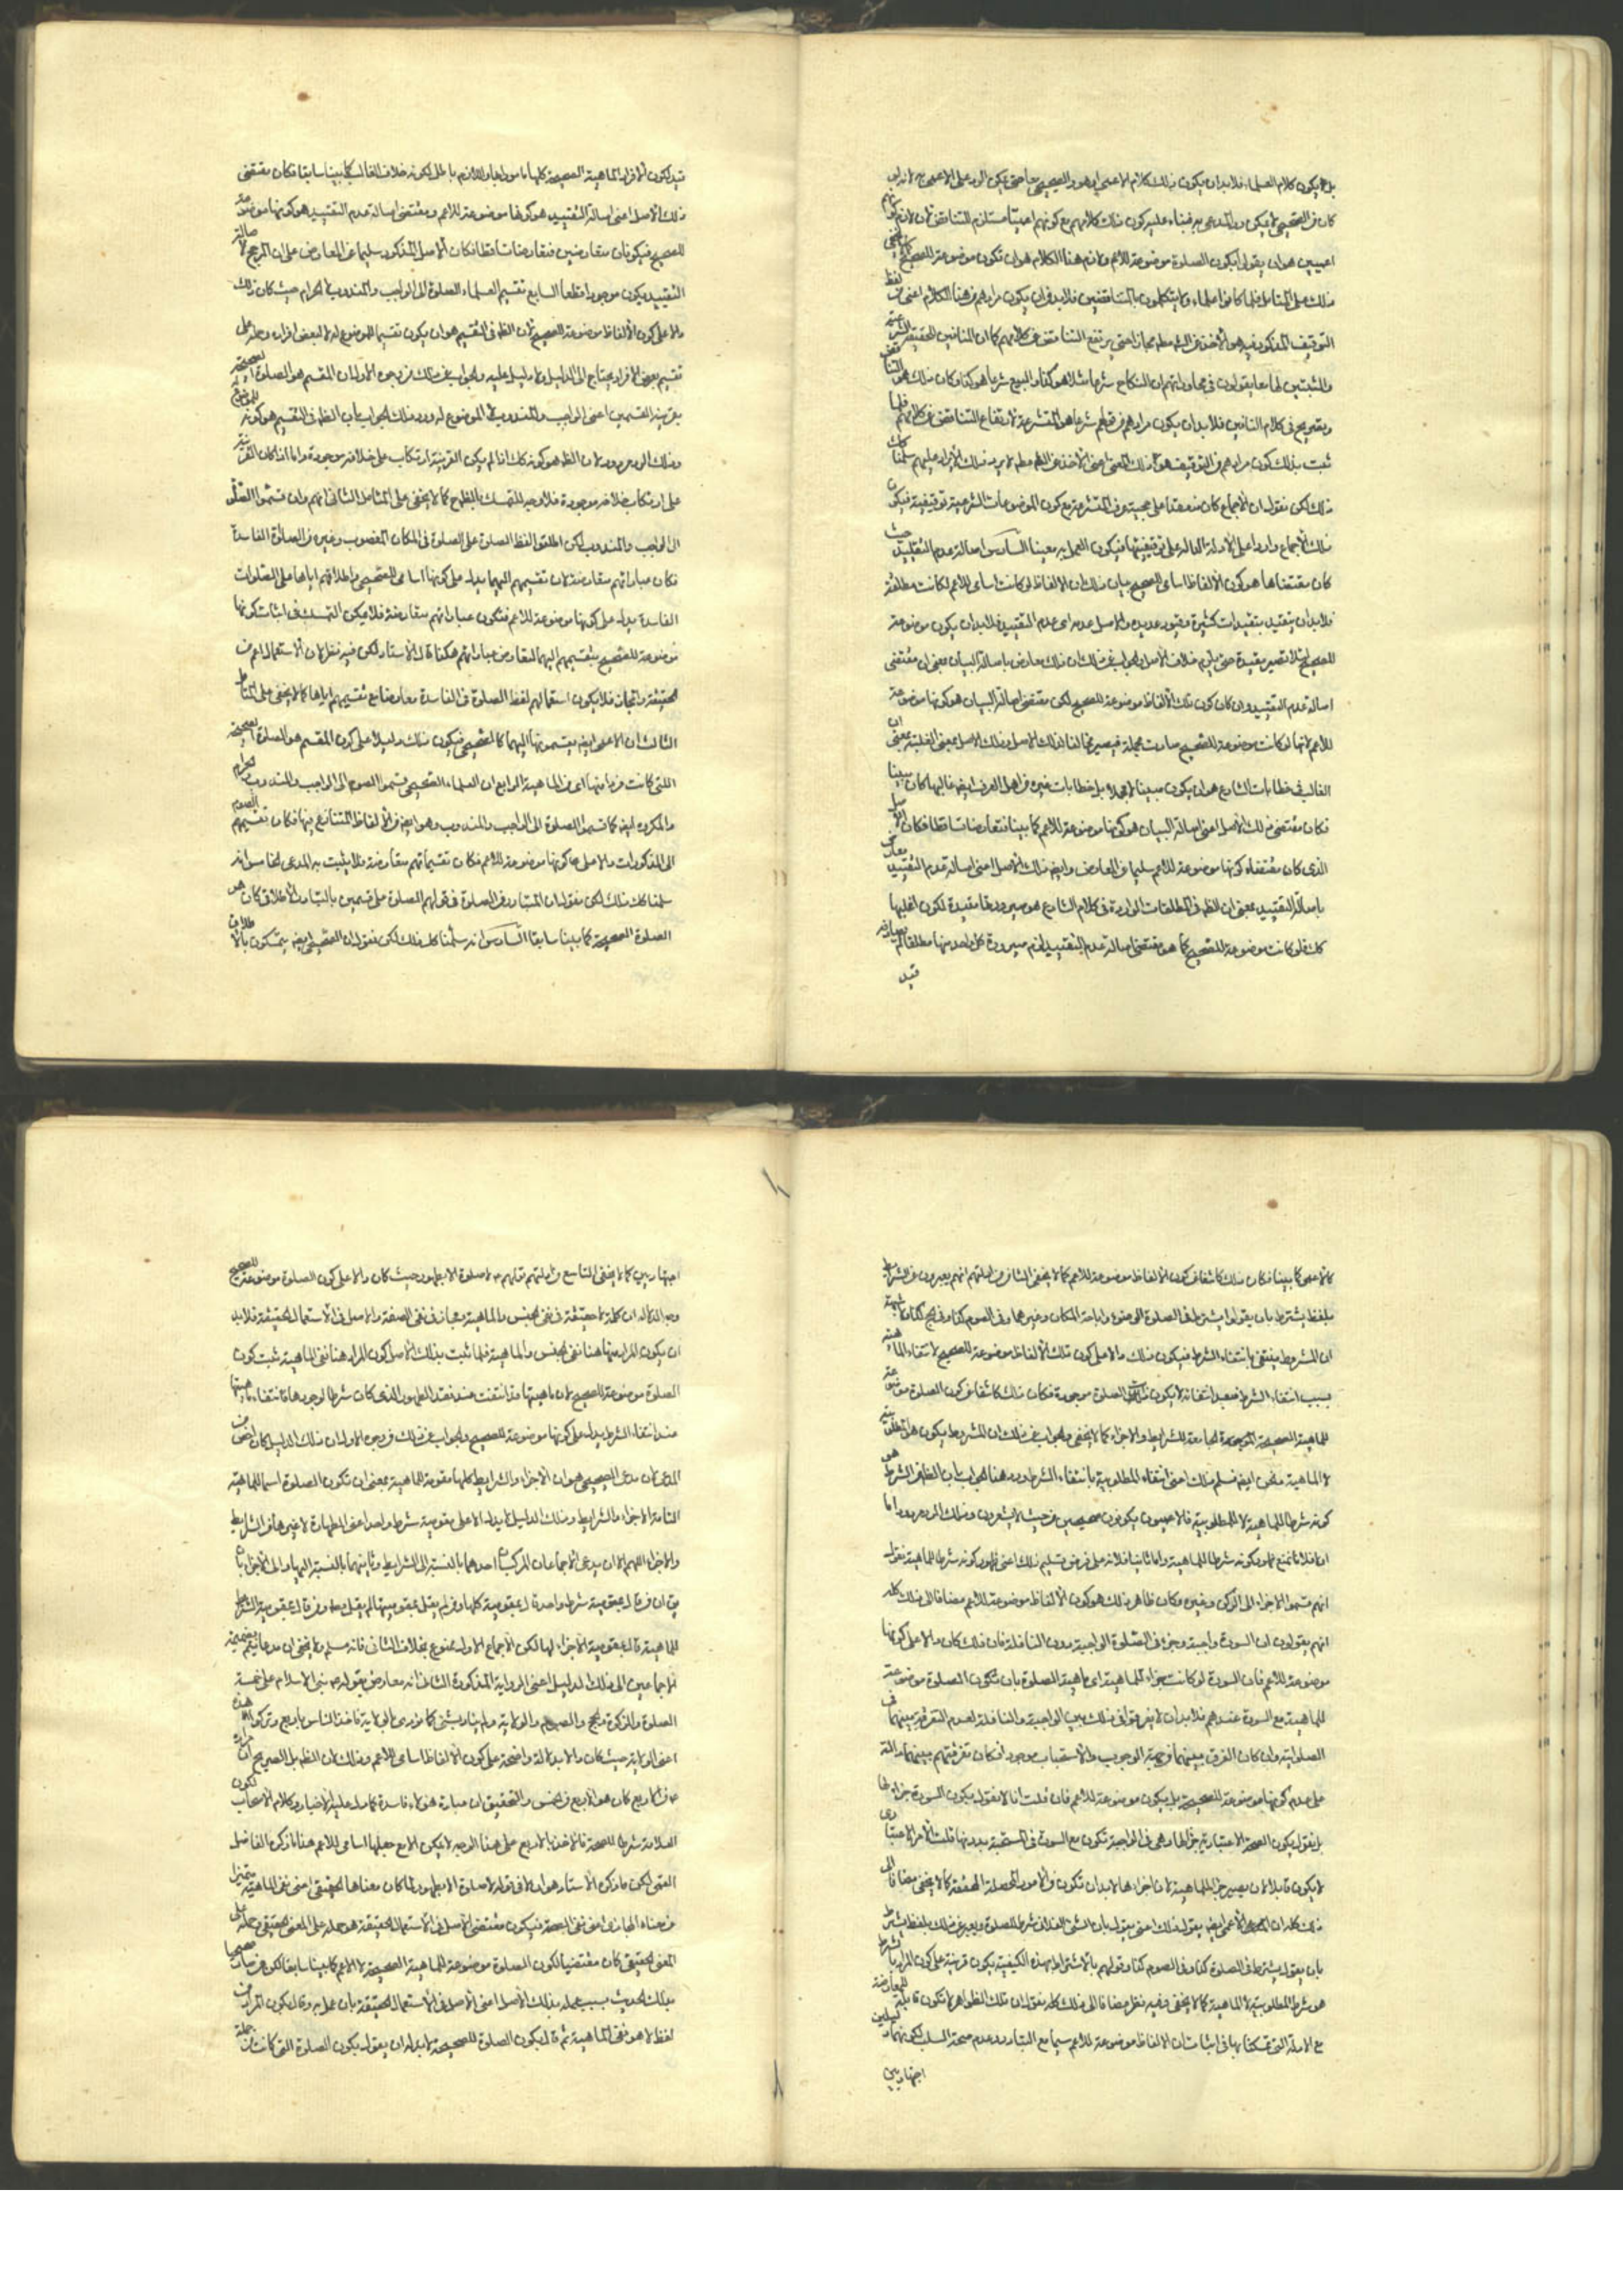 بل يكون كلام العلماء فلابد ان يكون ذلك كلام الاعمي او هو والصحيحي معا حتى يمكن الرد على الاعمي
كان في الصحيحي لا يمكن رد المدعي به فبناء عليه كون ذلك كلامهم مع كونهم اعميا مستلزم التناقض لان لازم كونهم
اعميين هو ان يقول ايكون الصلوة موضوعة للاعم ولازم هذا الكلام هو ان تكون موضوعة للصحيح كما لا يخفى
ذلك على المتامل فلما كانوا علماء ولم يتكلمون بالمتناقضين فلابد في ان يكون مرادهم من هذا الكلام اعني لفظ
التوقيف المذكور فيه هو الاخذ من الشرع مطلقا مجازا حتى يرتفع التناقض عن كلامهم كما ان المنافين للحقيقة الشرعية
والمثبتين لها معا يقولون في محاوراتهم ان النكاح شرعا مثلا هو كذا والبيع شرعا هو كذا وكان ذلك هو التناقض
وبصريح في كلام النافين فلابد ان يكون مرادهم من قولهم شرعا هو المتشرعة لارتفاع التناقض عن كلامهم فلما
ثبت بذلك كون مرادهم من التوقيف هو ذلك المعنى اعني الاخذ من الشرع مطلقا لا يرد ذلك الايراد عليهم سلمنا كل
ذلك لكن نقول ان الاجماع كان منعقدا على حجية عرف المتشرعة مع كون الموضوعات الشرعية توقيفية فيكون
ذلك الاجماع واردا على الادلة الدالة على توقيفيتها فيكون العمل به معينا السادس اصالة عدم التقييد حيث
كان مقتضاها هو كون الالفاظ اسامي للصحيح بيان ذلك ان الالفاظ لو كانت اسامي للاعم لكانت مطلقة
فلابد ان يتقيد بتقييدات كثيرة وقيود عديدة والاصل عدمه اي عدم التقييد فلابد ان يكون موضوعة
للصحيح لئلا تصير مقيدة حتى يلزم خلاف الاصل والجواب عن ذلك ان ذلك معارض باصالة البيان بمعنى ان مقتضى
اصالة عدم التقييد وان كان كون تلك الالفاظ موضوعة للصحيح لكن مقتضى اصالة البيان هو كونها موضوعة
للاعم لانها لو كانت موضوعة للصحيح صارت مجملة فيصير مخالفا لذلك الاصل وذلك الاصل بمعنى الغلبة بمعنى ان
الغالب في خطابات الشارع هو ان يكون مبينا لا مجملا بل خطابات غيره من اهل العرف ايضا غالبها كان مبينا
فكان مقتضى ذلك الاصل اعني اصالة البيان هو كونها موضوعة للاعم كما بينا فتعارضا تساقطا فكان الاصل
الذي كان مقتضاه كونها موضوعة للاعم سليما عن المعارض وايضا ذلك الاصل اعني اصالة عدم التقييد معارض
باصالة التقييد بمعنى ان الظاهر في المطلقات الواردة في كلام الشارع هو صيرورتها مقيدة لكون اغلبها
كك فلو كانت موضوعة للصحيح كما هو مقتضى اصالة عدم التقييد لزم صيرورة كل واحد منها مطلقا
قيد
قيد لكون الافراد الماهية الصحيحة كلها مامورا بها واللازم باطل لكونه خلاف الغالب كما بينا سابقا فكان مقتضى
ذلك الاصل اعني اصالة التقييد هو كونها موضوعة للاعم ومقتضى اصالة عدم التقييد هو كونها موضوعة
للصحيح فيكونان متعارضين فتعارضا تساقطا فكان الاصل المذكور سليما عن المعارض على ان المرجح لاصالة
التقييد يكون موجودا قطعا السابع تقسيم العلماء الصلوة الى الواجب والمندوب والحرام حيث كان ذلك
دالا على كون الالفاظ موضوعة للصحيح لان الظاهر في التقسيم هو ان يكون تقسيما للموضوع له لا لبعض افراده وحمله على
تقسيم بعض الافراد يحتاج الى الدليل ولا دليل عليه والجواب عن ذلك من وجوه الاول ان المقسم هو الصلوة الصحيحة
بقرينة القسمين اعني الواجب والمندوب لا الموضوع له ورد ذلك الجواب بان الظاهر في التقسيم هو كونه للموضوع له
وذلك الرد مردود لان الظاهر هو كونه كك اذا لم يكن القرينة لارتكاب على خلافه موجودة واما اذا كان القرينة
على ارتكاب خلافه موجودة فلا وجه للتمسك بالظهور كما لا يخفى على المتامل الثاني انهم وان قسموا الصلوة
الى الواجب والمندوب لكن اطلقوا لفظ الصلوة على الصلوة في المكان المغصوب وغيره من الصلوة الفاسدة
فكان عباراتهم متعارضة لان تقسيمهم اليهما يدل على كونها اسامي للصحيحي واطلاقهم اياها على الصلوات
الفاسدة يدل على كونها موضوعة للاعم فتكون عباراتهم متعارضة فلا يمكن التمسك في اثبات كونها
موضوعة للصحيح بتقسيمهم اليهما لتعارض عباراتهم هكذا قال الاستاد لكن فيه نظر لان الاستعمال اعم من
الحقيقة والمجاز فلا يكون استعمالهم لفظ الصلوة في الفاسدة معارضا مع تقسيمهم اياها كما لا يخفى على المتامل
الثالث ان الاعمي ايضا يقسمونها اليهما كالصحيحي فيكون ذلك دليلا على كون المقسم هو الصلوة الصحيحة
اللتي كانت فردا منها اي من الماهية الرابع ان العلماء الصحيحي قسموا الصوم الى الواجب والمندوب والحرام
والمكروه ايضا كما قسموا الصلوة الى الواجب والمندوب وهو ايضا من الالفاظ المتنازع فيها فكان تقسيمهم الصوم
الى المذكورات دالا على كونها موضوعة للاعم فكان تقسيماتهم متعارضة فلا يثبت به المدعى الخامس انه
سلمنا كل ذلك لكن نقول ان المتبادر من الصلوة في قولهم الصلوة على قسمين بالتبادر الاطلاقي كان هو
الصلوة الصحيحة كما بينا سابقا السادس انه سلمنا كل ذلك لكن نقول ان الصحيحي ايضا يتمسكون بالاطلاق
كالاعمي كما بينا فكان ذلك كاشفا عن كون الالفاظ موضوعة للاعم كما لا يخفى الثامن من ادلتهم انهم يعبرون عن الشرايط
بلفظ يشترط بان يقولوا يشترط في الصلوة الوضوء واباحة المكان وغيرهما وفي الصوم كذا وفي الحج كذا
ان المشروط ينتفي بانتفاء الشرط فيكون ذلك دالا على كون تلك الالفاظ موضوعة للصحيح لانتفاء الماهية
بسبب انتفاء الشرط فبعد انتفائه لا يكون تلك الصلوة موجودة فكان ذلك كاشفا عن كون الصلوة موضوعة
للماهية الصحيحة الجامعة للشرايط والاجزاء كما لا يخفى والجواب عن ذلك ان الشرط يكون
لا الماهية ونحن ايضا نسلم ذلك اعني انتفاء المطلوبية بانتفاء الشرط ورد هذا الجواب بان الظاهر من الشرط هو
كونه شرطا للماهية لا للمطلوبية فالاعميون يكونون صحيحيين من حيث لا يشعرون وذلك الرد مردود اما
اولا فلانا نمنع ظهور كونه شرطا للماهية واما ثانيا فلانه على فرض تسليم ذلك اعني ظهور كونه شرطا للماهية نقول
انهم قسموا الاجزاء الى الركن وغيره وكان ظاهر ذلك هو كون الالفاظ موضوعة للاعم مضافا الى ذلك كله
انهم يقولون ان السورة واجبة وجزء في الصلوة الواجبة بدون النافلة فان ذلك كان دالا على كونها
موضوعة للاعم فان السورة لو كانت جزءا للماهية اي ماهية الصلوة بان تكون الصلوة موضوعة
للماهية مع السورة عندهم فلابد ان لا يفرقوا في ذلك بين الواجبة والنافلة لعدم التفرقة بينهما في
الصلواتية وان كان الفرق بينهما من جهة الوجوب والاستحباب موجودا فكان تفرقتهم بينهما دالة
على عدم كونها موضوعة للصحيحة بل يكون موضوعة للاعم فان قلت انا لا نقول بكون السورة جزءا لها
بل نقول بكون الصحة الاعتبارية جزءا لها وهي في الواجبة تكون مع السورة وفي المستحبة بدونها قلت الامر الاعتباري
لا يكون قابلا لان يصير جزءا للماهية لان اجزاءها لابد ان تكون من الامور المحصلة المحققة كما لا يخفى مضافا الى
ذلك كله ان الاعمي ايضا يقول ذلك اعني يقول بان الشئ الفلاني شرط للصلوة ويعبر عن ذلك بلفظ يشترط
بان يقول يشترط في الصلوة كذا وفي الصوم كذا وقولهم بالاشتراط بهذه الكيفية يكون قرينة على كون المراد بالشرط
هو شرط المطلوبية لا الماهية كما لا يخفى وفيه نظر مضافا الى ذلك كله نقول ان تلك الظواهر لا تكون قابلة للمعارضة
مع الادلة التي تمسكنا بها في اثبات ان الالفاظ موضوعة للاعم سيما مع التبادر وعدم صحة السلب لكونهما دليلين
اجتهاديين
اجتهاديين كما لا يخفى التاسع من ادلتهم قولهم لا صلوة الا بطهور حيث كان دالا على كون الصلوة موضوعة للصحيح
وجه الدلالة ان كلمة لا حقيقة في نفي الجنس والماهية ومجاز في نفي الصفة والاصل في الاستعمال الحقيقة فلابد
ان يكون المراد منها هنا نفي الجنس والماهية فلما ثبت بذلك الاصل كون المراد هنا نفي الماهية ثبت كون
الصلوة موضوعة للصحيح لان ماهيتها قد انتفت عند فقد الطهور الذي كان شرطا لوجودها فانتفاء ماهيتها
عند انتفاء الشرط يدل على كونها موضوعة للصحيح والجواب عن ذلك من وجوه الاول ان ذلك الدليل كان اخص من
المدعى لان مدعى الصحيحي هو ان الاجزاء والشرايط كلها مقومة للماهية بمعنى ان تكون الصلوة اسما للماهية
التامة الاجزاء والشرايط وذلك الدليل لا يدل الا على مقومية شرط واحد اعني الطهارة لا غيرها من الشرايط
والاجزاء اللهم الا ان يدعى الاجماعان المركبان احدهما بالنسبة الى الشرايط وثانيهما بالنسبة اليها والى الاجزاء بان
يق ان من قال بمقومية شرط واحد قال بمقومية كلها ومن لم يقل بمقوميتها لم يقل مط ومن قال بمقومية الشرايط
للماهية قال بمقومية الاجزاء لها لكن الاجماع الاول ممنوع بخلاف الثاني فانه مسلم ولا يخفى ان مدعاه يتم بضميمة
الاجماعين الى ذلك الدليل اعني الرواية المذكورة الثاني انه معارض بقوله بني الاسلام على خمسة
الصلوة والزكوة والحج والصوم والولاية ولم يناد بشئ كما نودي بالولاية فاخذ الناس باربع وتركوا هذه
اعني الولاية حيث كان دالا بدلالة واضحة على كون الالفاظ اسامي للاعم وذلك لان الظاهر بل الصريح ان مراده
من الاربع كان هو الاربع من الخمس والتحقيق ان عبارة هؤلاء فاسدة كما دل عليه الاخبار وكلام الاصحاب لكون
العلامة شرطا للصحة فالاخذ بالاربع على هذا الوجه لا يمكن الا مع جعلها اسامي للاعم هذا ما ذكره الفاضل
القمي لكن ما ذكره الاستاد هو ان لا في قوله لا صلوة الا بطهور لما كان معناها الحقيقي اعني نفي الماهية متميزا
عن معناه المجازي اعني نفي الصحة فيكون مقتضى الاصل في الاستعمال الحقيقة هو حمله على المعنى الحقيقي وحمله على
المعنى الحقيقي كان مقتضيا لكون الصلوة موضوعة للماهية الصحيحة لا الاعم كما بينا سابقا لكن من صار صحيحيا
بذلك الحديث بسبب عمله بذلك الاصل اعني الاصل في الاستعمال الحقيقة بان عمل به وقال بكون المراد من
لفظ لا هو نفي الماهية ثم قال بكون الصلوة للصحيحة لابد له ان يقول بكون الصلوة التي كانت من جملة